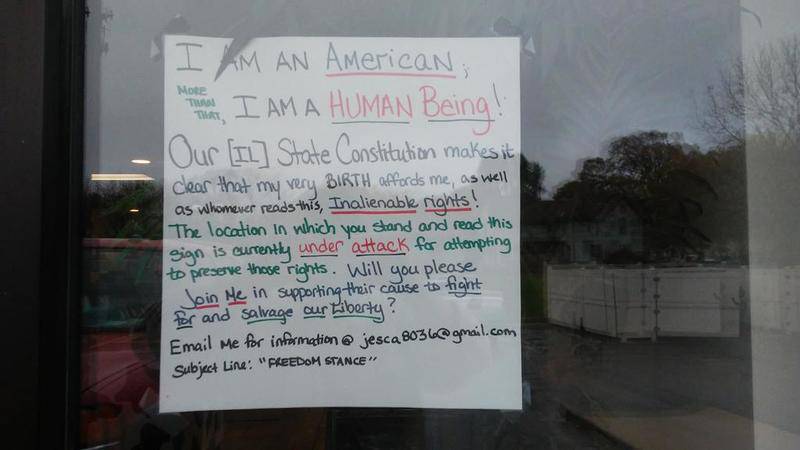 I AM AN American;
MORE THAN THAT, I AM A HUMAN Being!
Our [IL] State Constitution makes it
clear that my very BIRTH affords me, as well
as whomever reads this, Inalienable rights!
The location in which you stand and read this
sign is currently under attack for attempting
to preserve those rights. Will you please
Join Me in supporting their cause to fight
for and salvage our Liberty?
Email Me for information @ jesca8036@gmail.com
Subject Line: "FREEDOM STANCE"